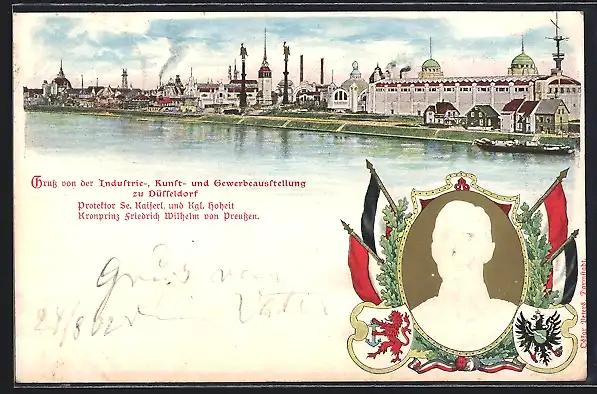 Gruß von der Industrie-, Kunst- und Gewerbeausstellung
zu Düsseldorf
Protektor Se. Kaiserl. und Kgl. Hoheit
Kronprinz Friedrich Wilhelm von Preußen.
Gruß von
Vater